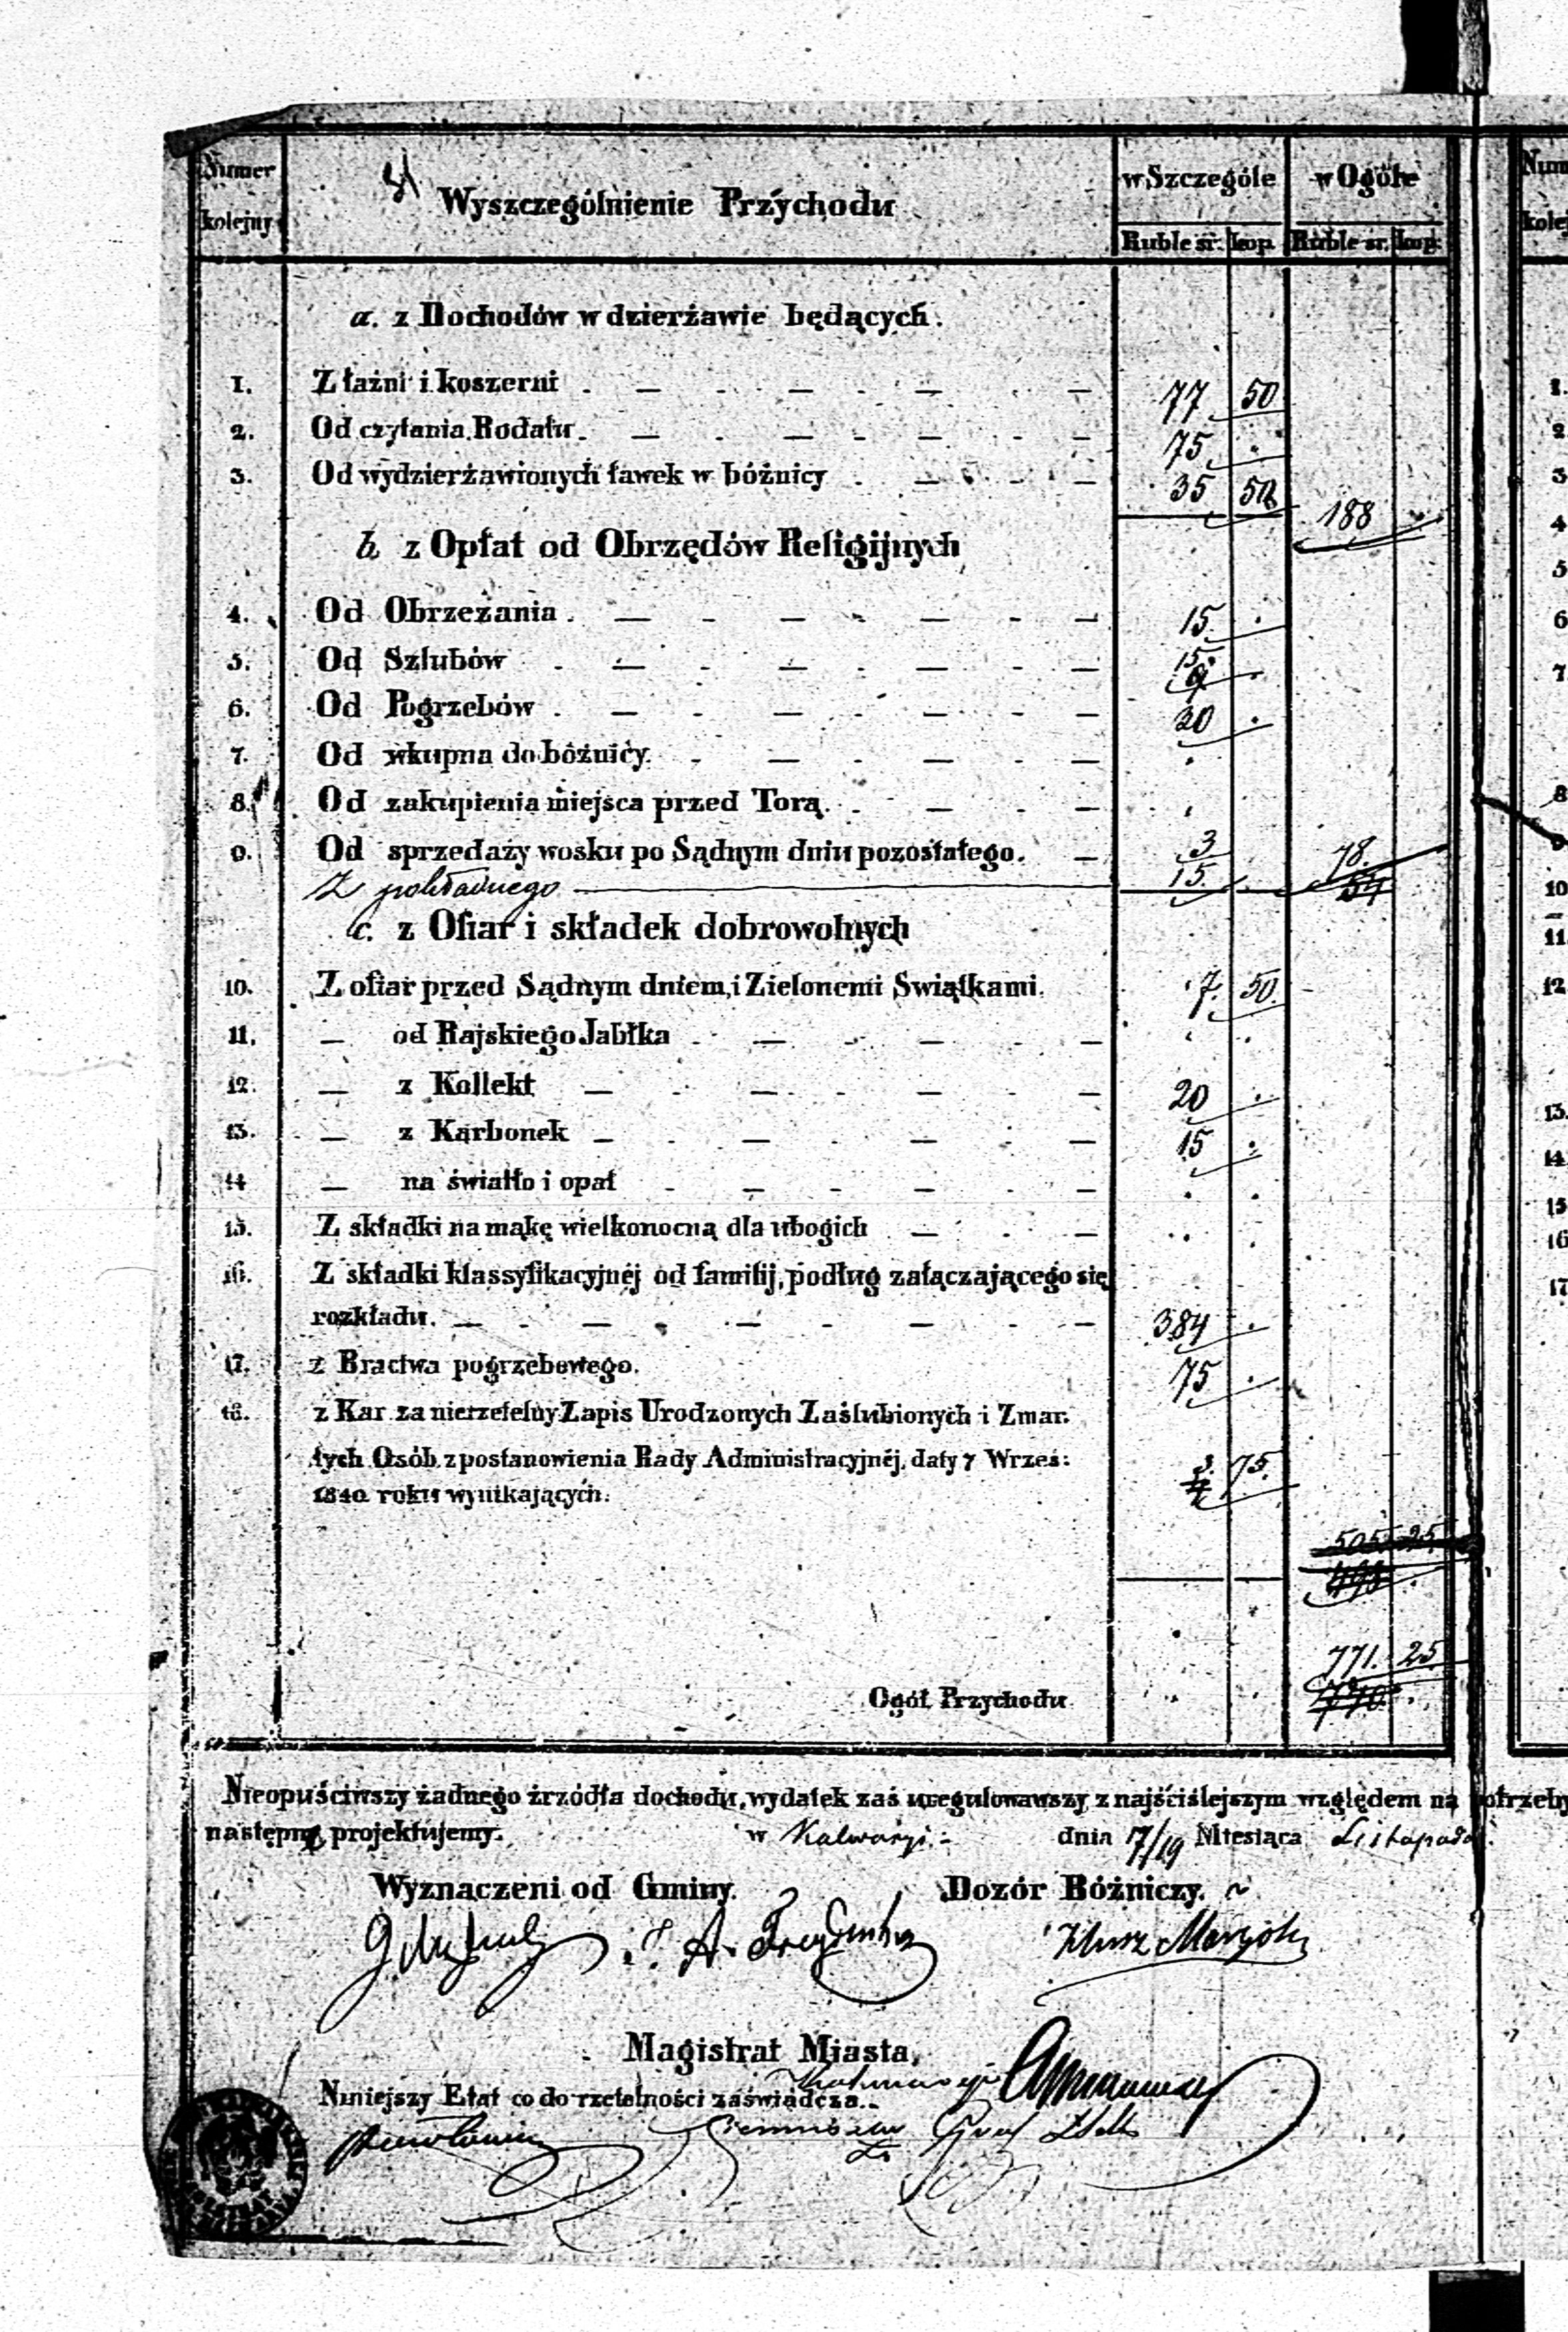 Numer kolejny
Wyszczególnienie Przychodu
w Szczególe
w Ogóle
Ruble sr. kop. Ruble sr. kop.
a. z Dochodów w dzierżawie będących.
1. Z łaźni i koszerni 77 50
2. Od czytania Rodału. 75 .
3. Od wydzierżawionych ławek w bóżnicy 35 50
188 .
b. z Opłat od Obrzędów Religijnych
4. Od Obrzezania. 15 .
5. Od Szlubów 15 .
6. Od Pogrzebów 30 .
7. Od wkupna do bóżnicy.
8. Od zakupienia miejsca przed Torą.
9. Od sprzedaży wosku po Sądnym dniu pozostałego. 3
Z pokładnego 15. 78.
54
c. z Ofiar i składek dobrowolnych
10. Z ofiar przed Sądnym dniem, i Zielonemi Swiątkami. 7. 50.
11. — od Rajskiego Jabłka
12. — z Kollekt 20 .
13. — z Karbonek 15 .
14 — na światło i opał
15. Z składki na mąkę wielkonocną dla ubogich
16. Z składki klassyfikacyjnéj od familij, podług załączającego się
rozkładu. 384 .
17. z Bractwa pogrzebowego. 75 .
18. z Kar za nierzetelny Zapis Urodzonych Zaślubionych i Zmar-
łych Osób z postanowienia Rady Administracyjnéj, daty 7 Wrześ:
1840 roku wynikających. 3. 75.
505 25
771. 25
Ogół Przychodu 740
Nieopuściwszy żadnego źrzódła dochodu, wydatek zaś uregulowawszy z najściślejszym względem na potrzeby
następną projektujemy. w Kalwaryi dnia 7/19 Miesiąca Listopada
Wyznaczeni od Gminy. Dozór Bóżniczy.
Magistrat Miasta,
Niniejszy Etat co do rzetelności zaświadcza.
Num
kolej
1.
2
3
4
5
6
7
8
9
10
11
12
13.
14
15
16
17